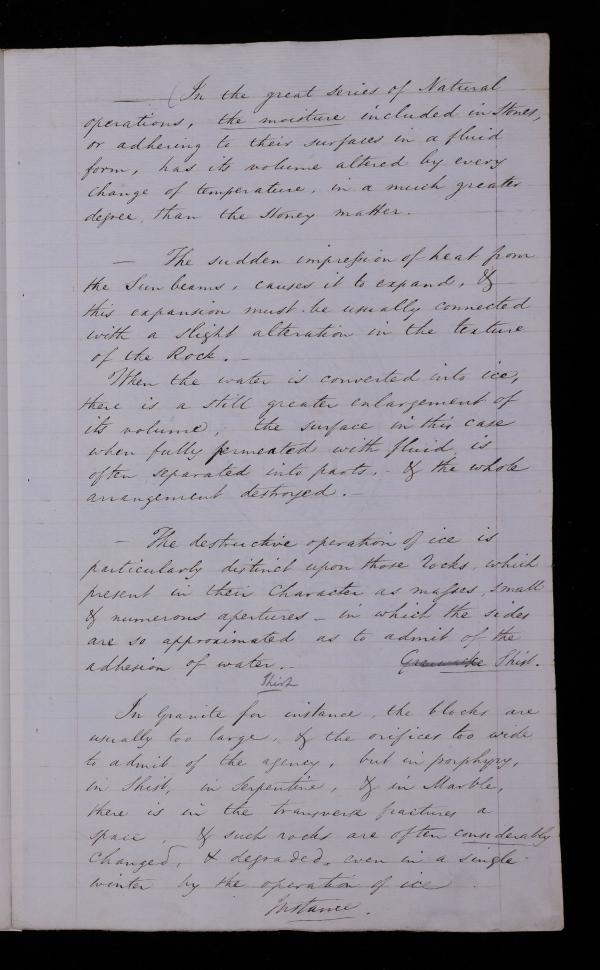 — (In the great series of Natural
operations, the moisture included in Stones,
or adhering to their surfaces in a fluid
form, has its volume altered by every
change of temperature, in a much greater
degree, than the Stoney matter.
— The sudden impression of heat from
the Sun beams, causes it to expand, &
this expansion must be usually connected
with a slight alteration in the texture
of the Rock. —
When the water is converted into ice,
there is a still greater enlargement of
its volume, the surface in this case
when fully permeated with fluid is
often separated into parts, - & the whole
arrangement destroyed. —
— The destructive operation of ice is
particularly distinct upon those Rocks, which
present in their Character as masses, small
& numerous apertures — in which the sides
are so approximated as to admit of the
adhesion of water. — Grauwacke Shist.
Shist
In Granite for instance, the blocks are
usually too large, & the orifices too wide
to admit of the agency, but in porphyry,
in Shist, in Serpentine, & in Marble,
there is in the transverse fractures a
space, & such rocks are often considerably
Changed, & degraded, even in a single
winter by the operation of ice
Instance.